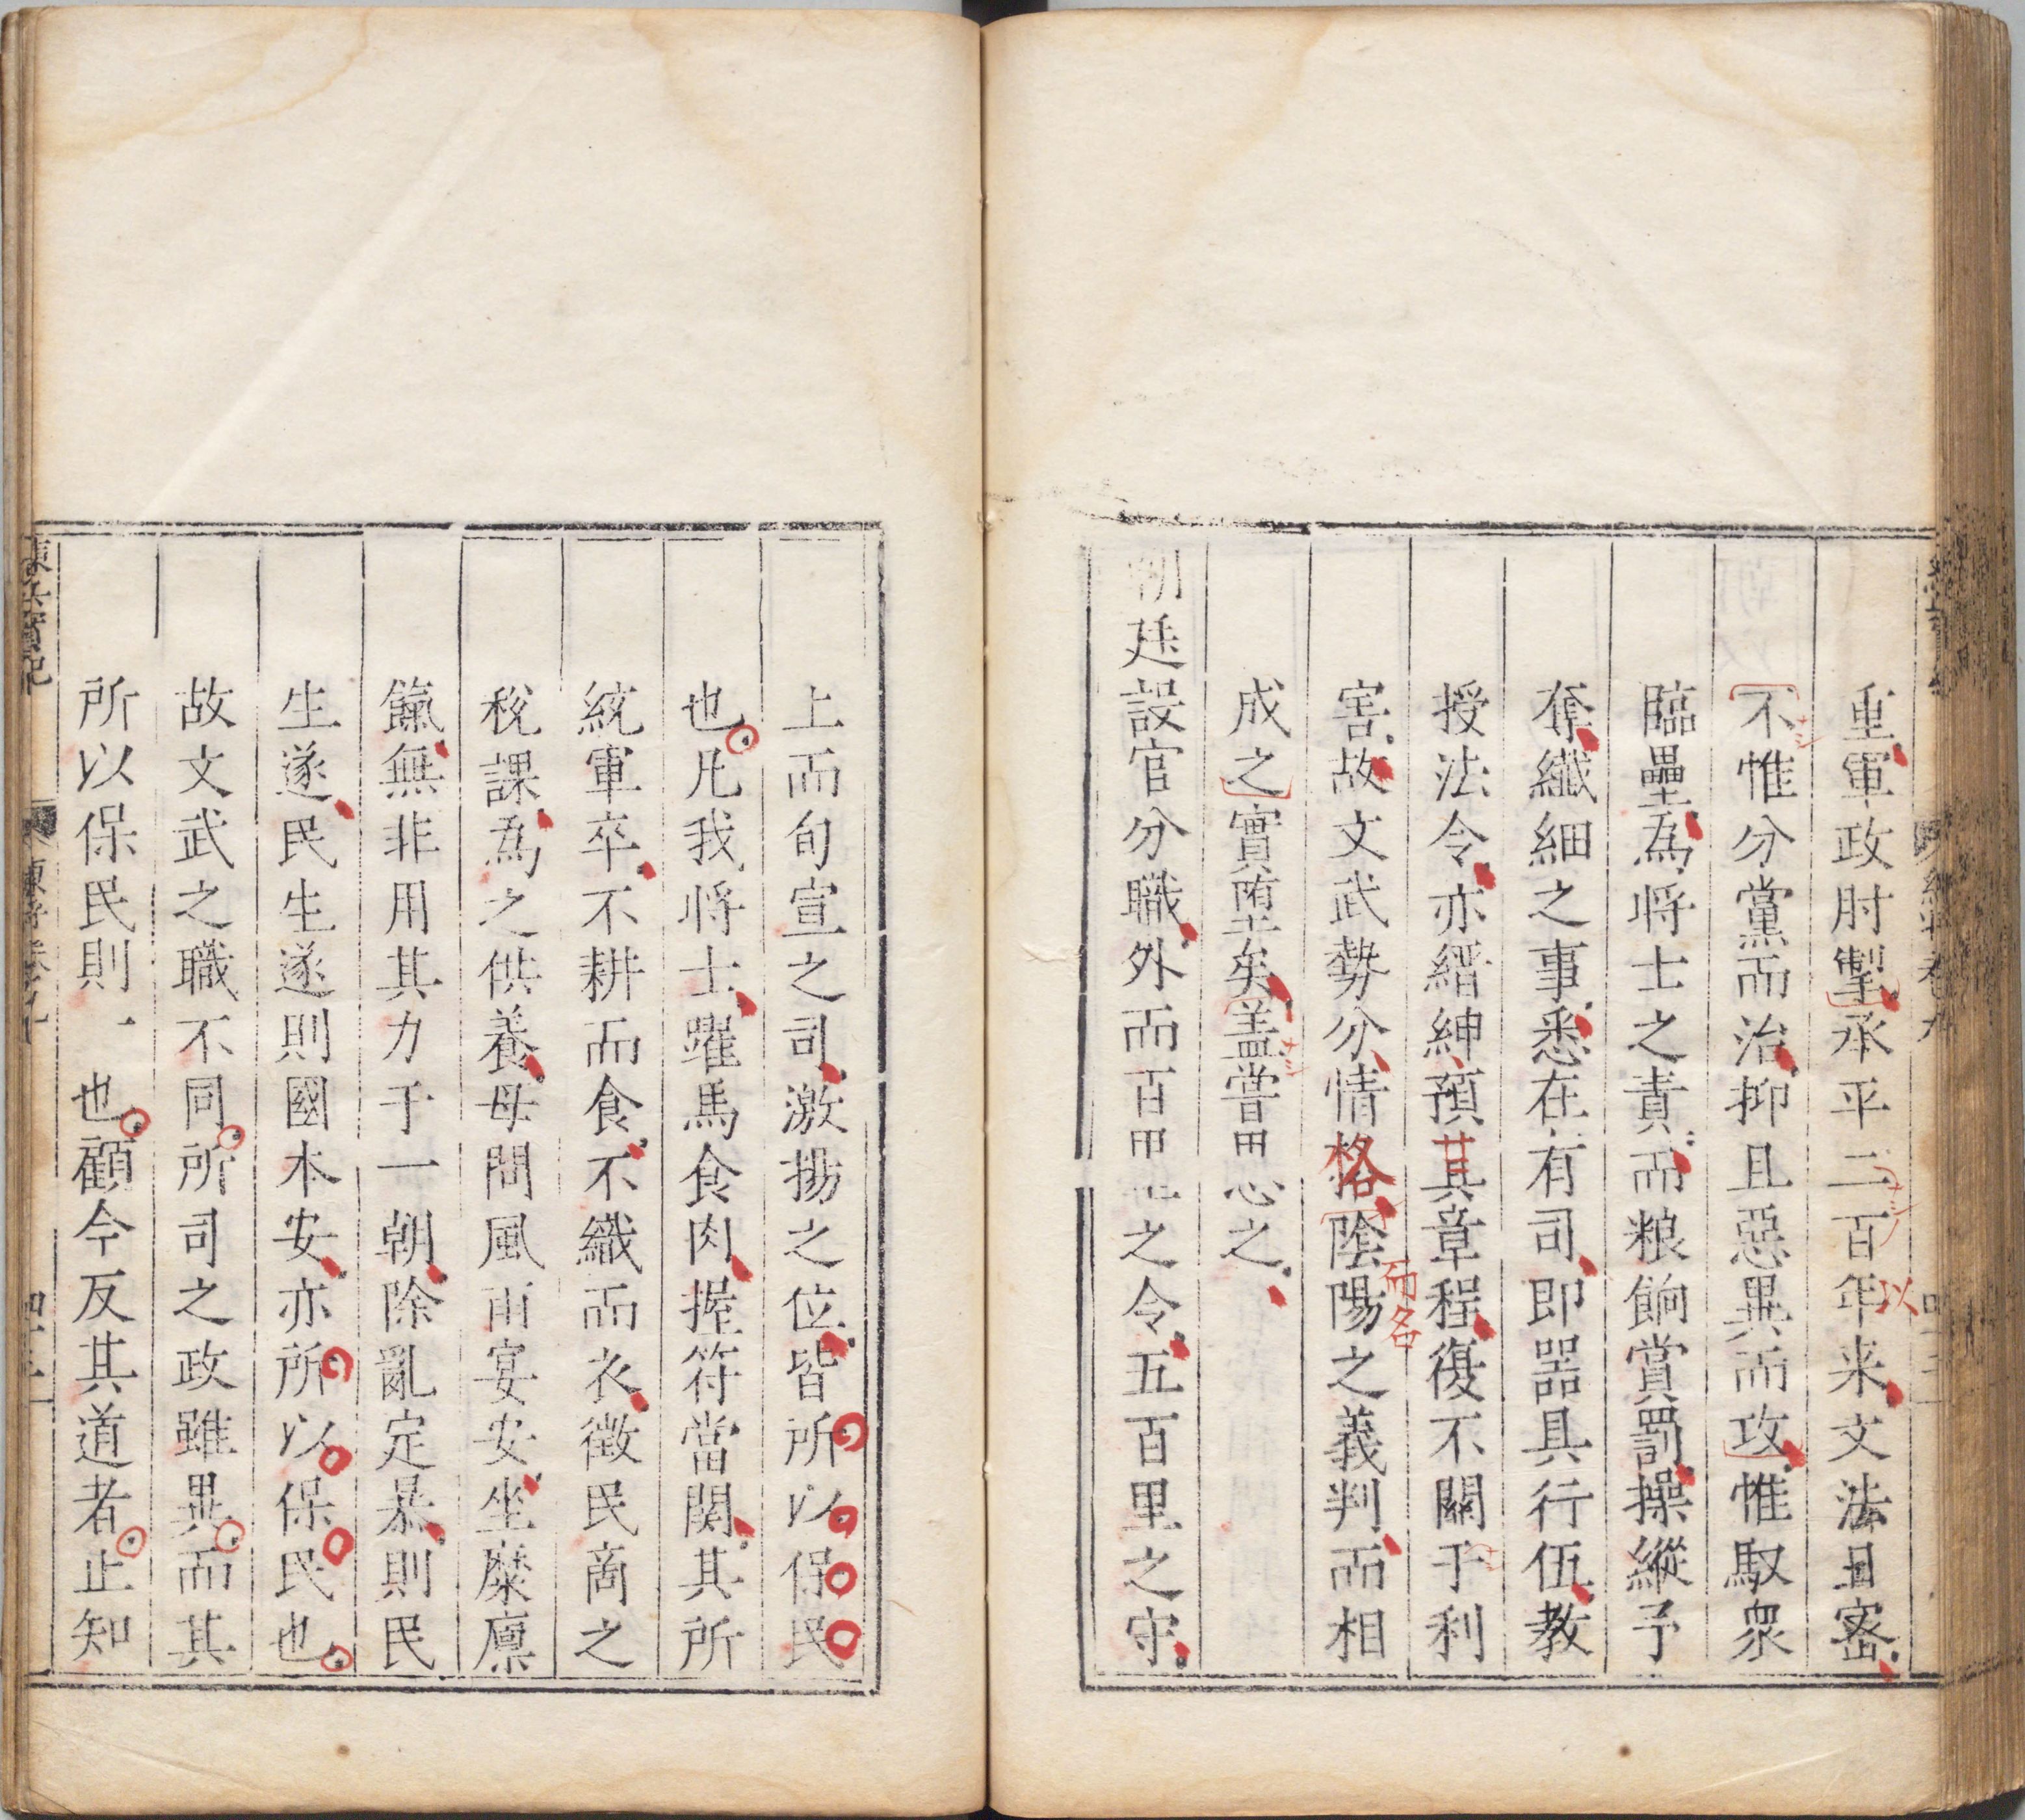 重軍政肘掣承平二百年来文法日密
以
不惟分黨而治抑且惡異而攻惟馭衆
臨壘為将士之責而粮餉賞罰操縱予
奪纖細之事悉在有司即器具行伍教
授法令亦縉紳預其章程復不關于利
而名
害故文武勢分情格陰陽之義判而相
成之實堕矣盖嘗思之
朝廷設官分職外而百里之令五百里之守
上而旬宣之司激揚之位皆所以保民
也凡我将士躍馬食肉握符當関其所
統軍卒不耕而食不織而衣徵民商之
税課為之供養毋間風雨宴安坐糜廪
餼無非用其力于一朝除亂定暴則民
生遂民生遂則國本安亦所以保民也
故文武之職不同所司之政雖異而其
所以保民則一也顧今反其道者止知
練兵實紀